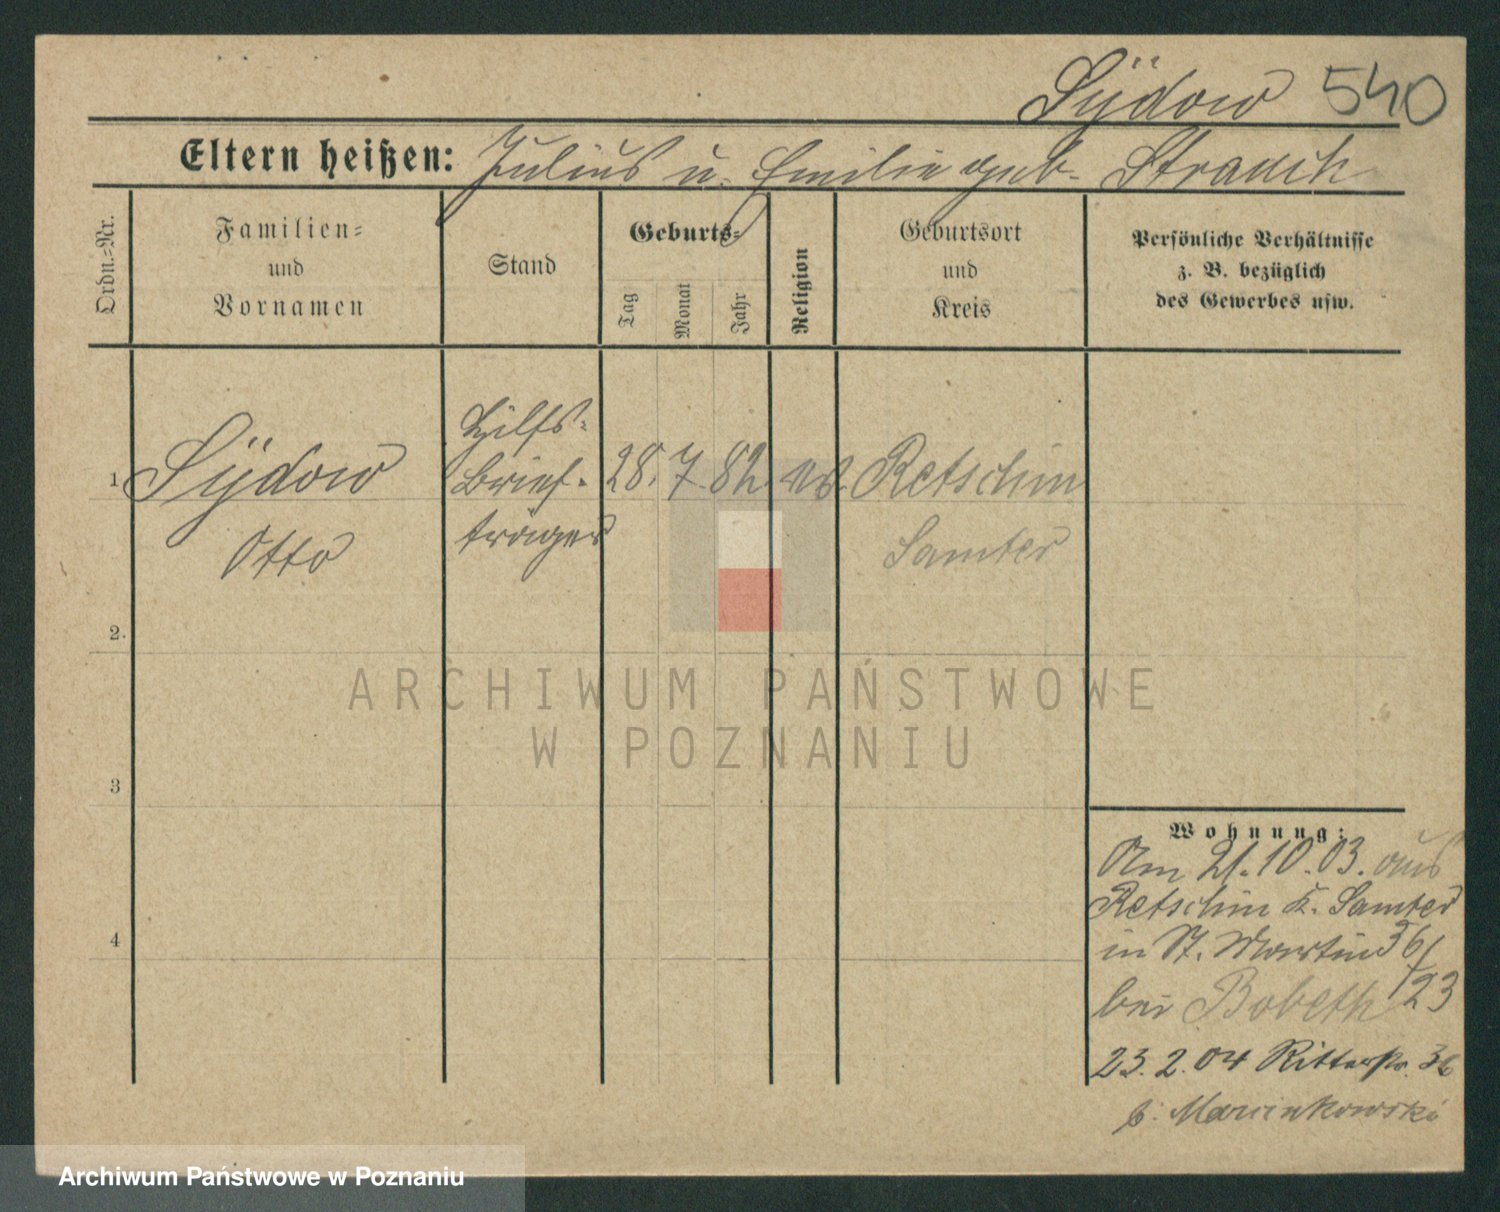 Sÿdow 540
Eltern heißen: Julius u. Emilie geb. Strauch
Ordn.=Nr.
Familien=
und
Vornamen
Stand
Geburts=
Tag
Monat
Jahr
Religion
Geburtsort
und
Kreis
Persönliche Verhältnisse
z. B. bezüglich
des Gewerbes usw.
1
Sÿdow
Otto
Hilfs=
brief-
träger
28. 7. 82. ev. Retschin
Samter
2.
3
4
Wohnung:
Am 21.10.03. aus
Retschin K. Samter
in St. Martin 56/
bei Bobeth 23
23.2.04 Ritterstr. 36
b. Marcinkowski
ARCHIWUM PAŃSTWOWE
W POZNANIU
Archiwum Państwowe w Poznaniu